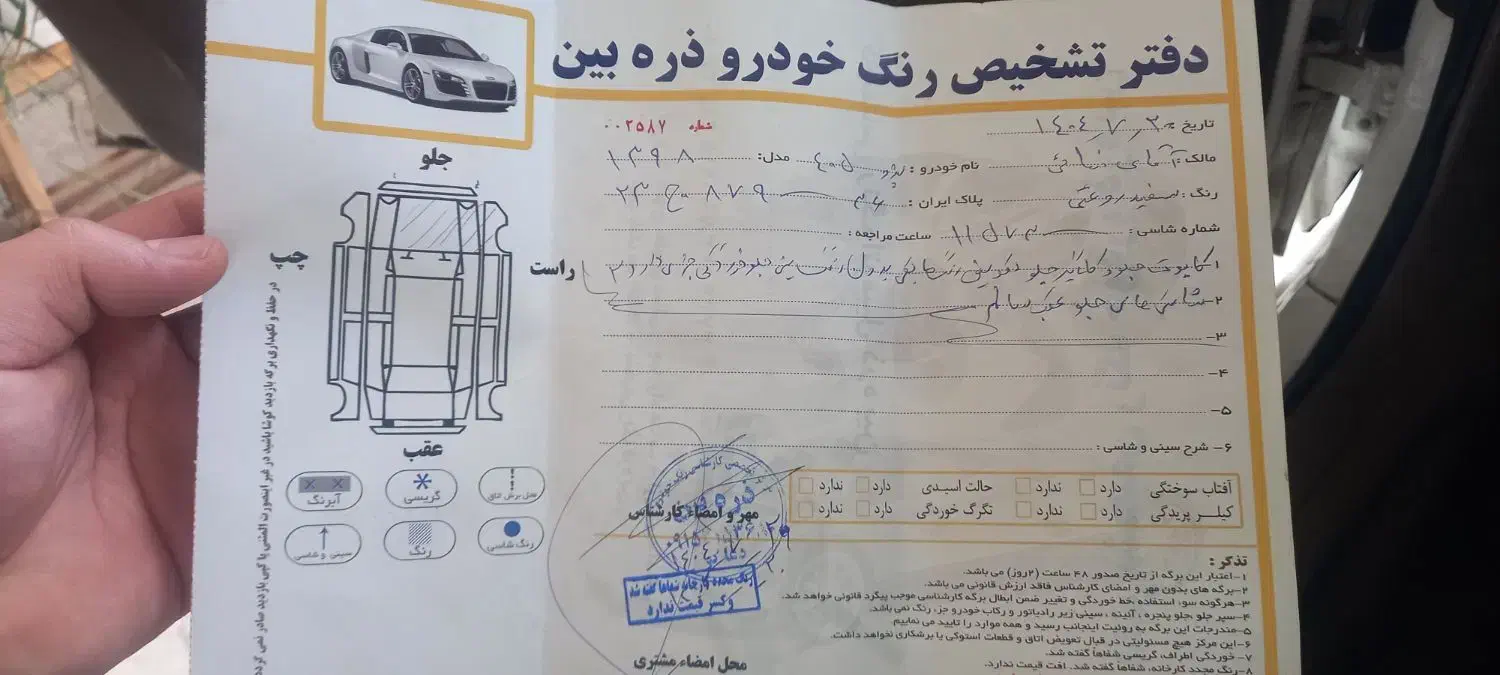 دفتر تشخیص رنگ خودرو ذره بین
شماره ۰۰۲۵۸۷
تاریخ ۱۴۰۴٫۷٫۳۰
مالک: آقای نام خودرو: پژو ۴۰۵ مدل: ۱۳۹۸
رنگ: سفید روغنی پلاک ایران: ۸۷۹ ج ۲۳
شماره شاسی: ساعت مراجعه:
۱ کاپوت جلو گلگیر جلو رنگ
۲- شاسی های جلو عقب سالم
۳-
۴-
۵-
۶- شرح سینی و شاسی:
آفتاب سوختگی دارد ندارد حالت اسیدی دارد ندارد
کیلر پریدگی دارد ندارد تگرگ خوردگی دارد ندارد
مهر و امضاء کارشناس
رنگ مجدد کارخانه شفاها گفته شد
و کسر قیمت ندارد
محل امضاء مشتری
تذکر:
۱-اعتبار این برگه از تاریخ صدور ۴۸ ساعت (۲روز) می باشد.
۲-برگه های بدون مهر و امضای کارشناس فاقد ارزش قانونی می باشد.
۳-هرگونه سوء استفاده ،خط خوردگی و تغییر ضمن ابطال برگه کارشناسی موجب پیگرد قانونی خواهد شد.
۴-سپر جلو ،جلو پنجره ، آئینه ، سینی زیر رادیاتور و رکاب خودرو جزء رنگ نمی باشد.
۵-مندرجات این برگه به رویت اینجانب رسید و همه موارد را تایید می نماییم.
۶-این مرکز هیچ مسئولیتی در قبال تعویض اتاق و قطعات استوکی یا برشکاری نخواهد داشت.
۷- خوردگی اطراف، گریسی شفاهاً گفته شد.
۸-رنگ مجدد کارخانه، شفاهاً گفته شد. افت قیمت ندارد.
جلو
چپ
راست
عقب
آبرنگ
گریسی
محل برش اتاق
سینی و شاسی
رنگ
رنگ شاسی
در حفظ و نگهداری برگه بازدید کوشا باشید در غیر اینصورت المثنی یا کپی بازدید صادر نمی گردد